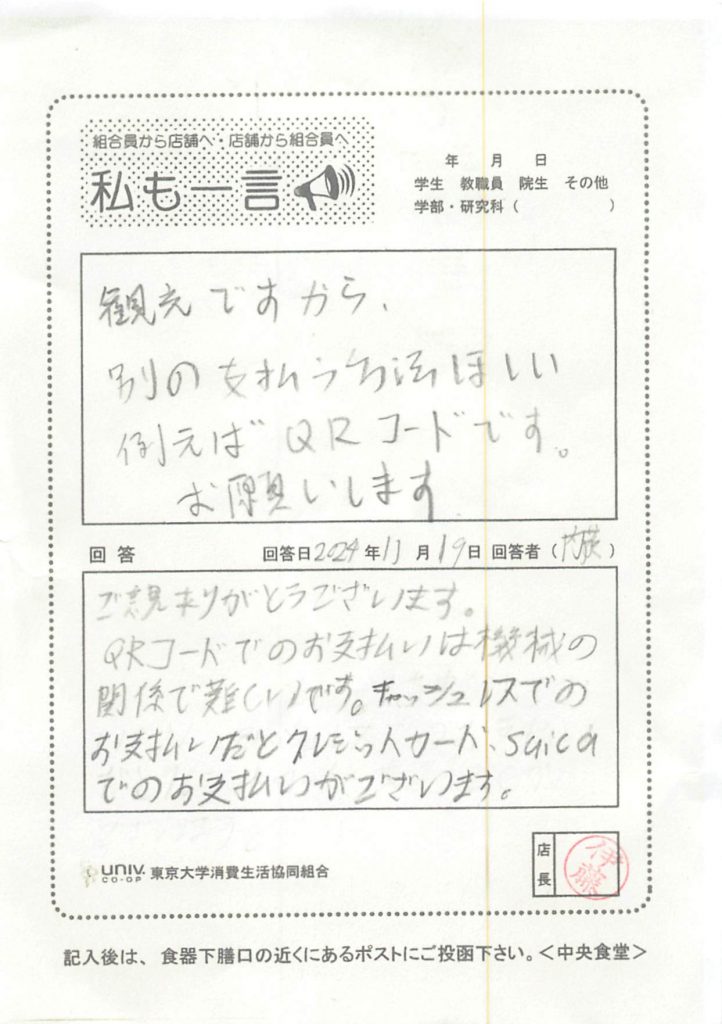 組合員から店舗へ・店舗から組合員へ
私も一言
年 月 日
学生 教職員 院生 その他
学部・研究科 ( )
観光ですから、
別の支払う方法ほしい
例えば QRコードです。
お願いします
回答 回答日2024年11月19日 回答者 ( )
ご意見ありがとうございます。
QRコードでのお支払いは機械の
関係で難しいです。キャッシュレスでの
お支払いだとクレジットカード、suica
でのお支払いがございます。
店長
伊藤
univ.
CO-OP
東京大学消費生活協同組合
記入後は、食器下膳口の近くにあるポストにご投函下さい。<中央食堂>